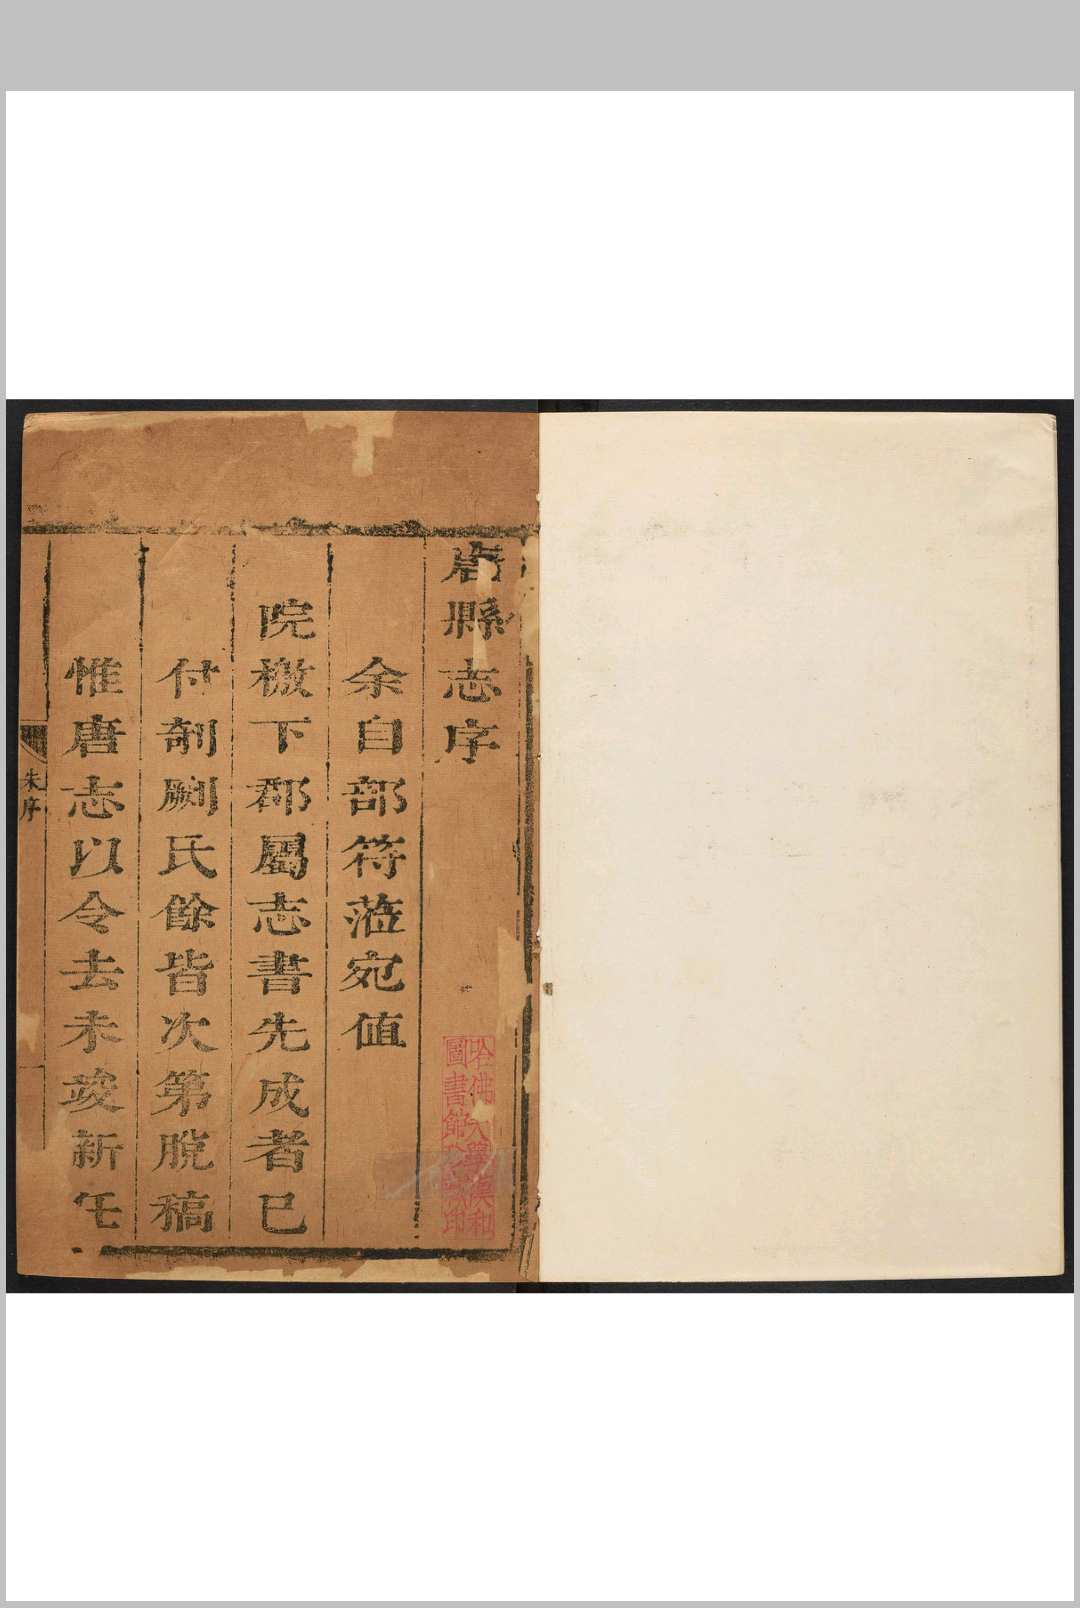 唐縣志序
余自部符蒞宛值
院檄下郡屬志書先成者已
付剞劂氏餘皆次第脫稿
惟唐志以令去未竣新任
朱序
哈佛大學漢和
圖書館珍藏印